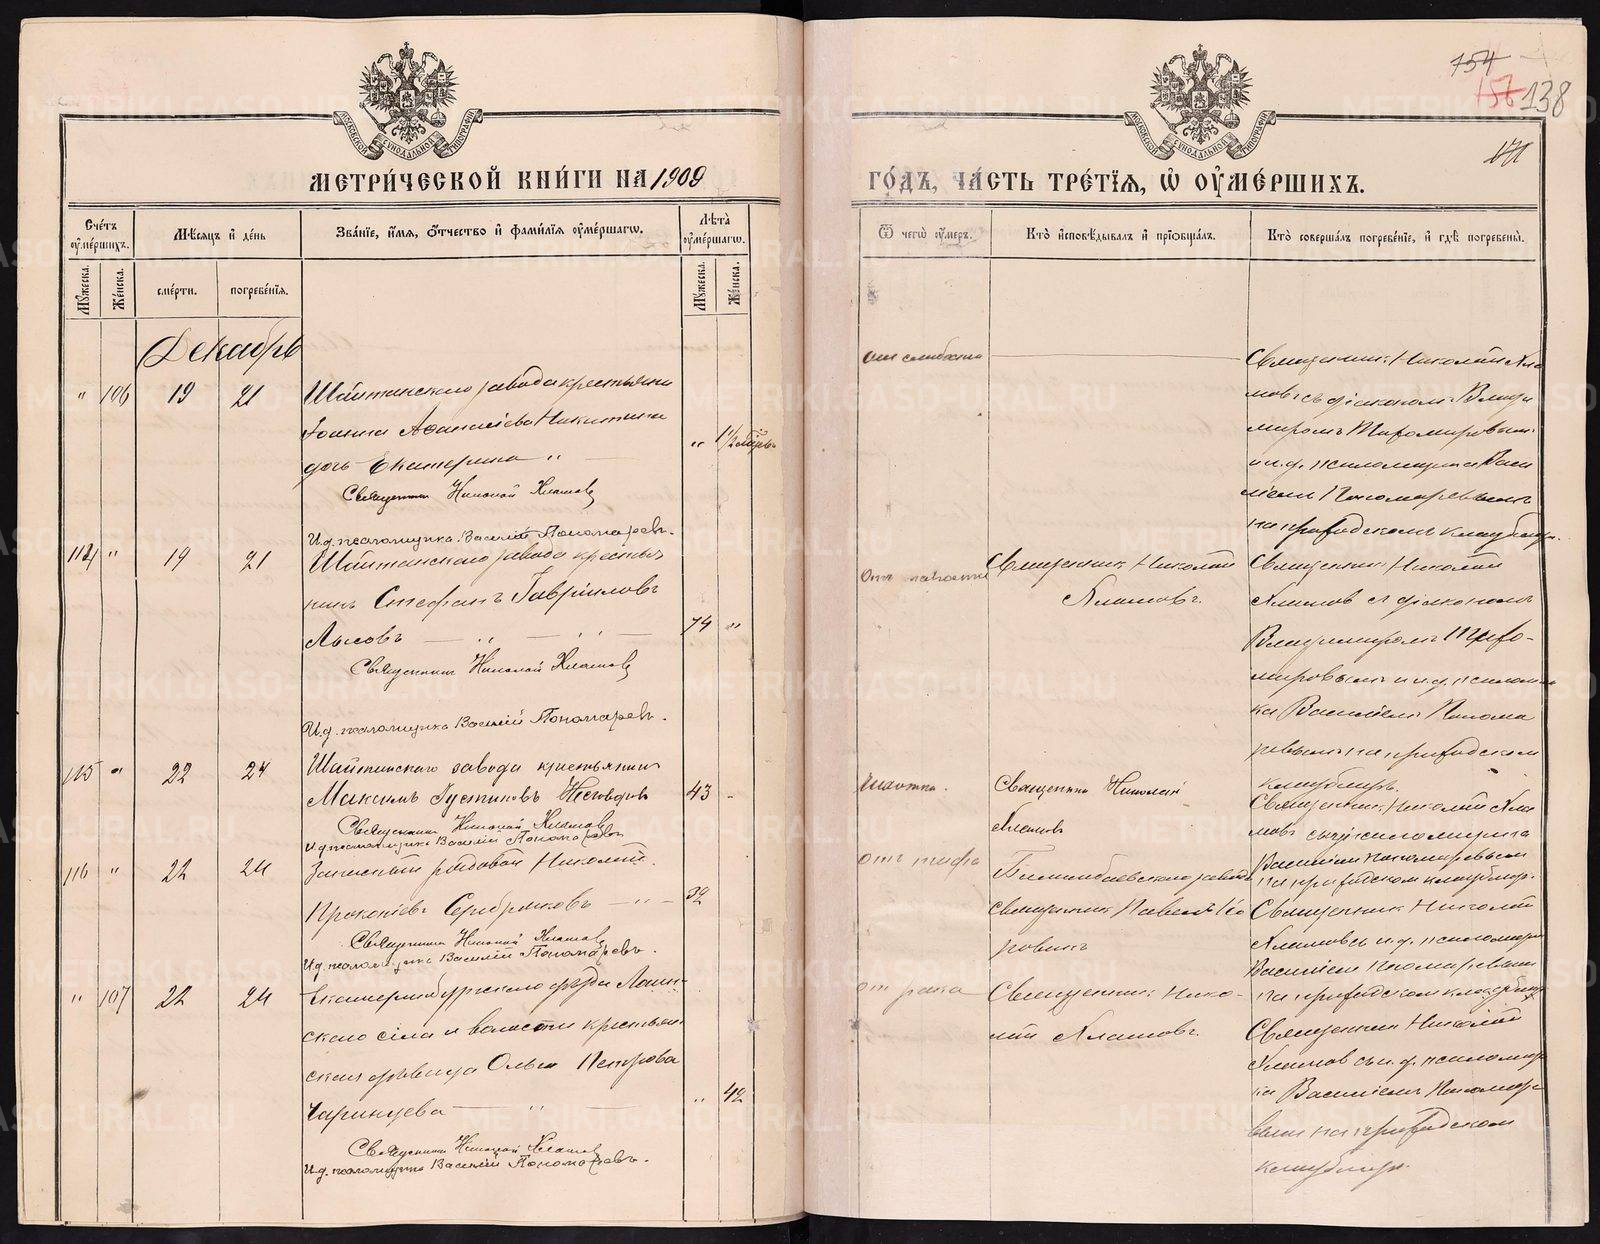 154
156 138
171
МОСКОВСКОЙ СѴНОДАЛЬНОЙ ТИПОГРАФІИ
МОСКОВСКОЙ СѴНОДАЛЬНОЙ ТИПОГРАФІИ
МЕТРИ́ЧЕСКОЙ КНИ́ГИ НА 1909
ГО́ДЪ, ЧА́СТЬ ТРЕ́ТІѦ, Ѡ҆ ОУ҆МЕ́РШИХЪ.
Сче́тъ оу҆ме́ршихъ.
Мѣ́сяцъ и҆ де́нь
Зва́нїе, и҆́мя, ѻ҆́тчество и҆ фами́лїя оу҆ме́ршагѡ.
Лѣ́та оу҆ме́ршагѡ.
Мꙋ́жеска.
Же́нска.
сме́рти.
погребе́нїя.
Мꙋ́жеска.
Же́нска.
Ѿ чегѡ̀ оу҆́меръ.
Кто̀ и҆сповѣ́дывалъ и҆ прїѡбща́лъ.
Кто̀ соверша́лъ погребе́нїе, и҆ гдѣ̀ погребены̀.
Декабрь
" 106 19 21 Шайтанскаго завода крестьянина
Іоанна Аѳанасіева Никитина
дочь Екатерина "
" 1½ мѣсяц.
Священникъ Николай Хламовъ
И.д. псаломщика Василій Пономаревъ.
отъ слабости
Священникъ Николай Хла
мовъ съ діакономъ Влади
міромъ Тихомировымъ
и и.д. псаломщика Васи
ліемъ Пономаревымъ
на приходскомъ кладбищѣ.
114 " 19 21 Шайтанскаго завода крестья
нинъ Стефанъ Гавріиловъ
Лысовъ — " — " —
74 "
Священникъ Николай Хламовъ
И.д. псаломщика Василій Пономаревъ.
Отъ
Священникъ Николай
Хламовъ.
Священникъ Николай
Хламовъ съ діакономъ
Владиміромъ Тихо-
мировымъ и и.д. псаломщи
ка Василіемъ Понома
ревымъ на приходскомъ
кладбищѣ.
115 " 22 24 Шайтанскаго завода крестьянинъ
Максимъ Густиновъ
43 -
Священникъ Николай Хламовъ
И.д. псаломщика Василій Пономаревъ
Священникъ Николай
Хламовъ
Священникъ Николай Хла
мовъ съ и.д. псаломщика
Василіемъ Пономаревымъ
на приходскомъ кладбищѣ.
116 " 22 24 Запасный рядовой Николай
Прокопіевъ Серебряковъ — " —
32
Священникъ Николай Хламовъ
И.д. псаломщика Василій Пономаревъ.
отъ тифа
Билимбаевскаго завода
священникъ Павелъ
Священникъ Николай
Хламовъ съ и.д. псаломщика
Василіемъ Пономаревымъ
на приходскомъ кладбищѣ
" 107 22 24 Екатеринбургскаго уѣзда
скаго села и волости крестьян
ская дѣвица Ольга Петрова
— " —
" 42
Священникъ Николай Хламовъ
И.д. псаломщика Василій Пономаревъ.
от рака
Священникъ Нико-
лай Хламовъ.
Священникъ Николай
Хламов съ и.д. псаломщи
ка Василіемъ Пономаре
вымъ на приходскомъ
кладбищѣ.
METRIKI.GASO-URAL.RU